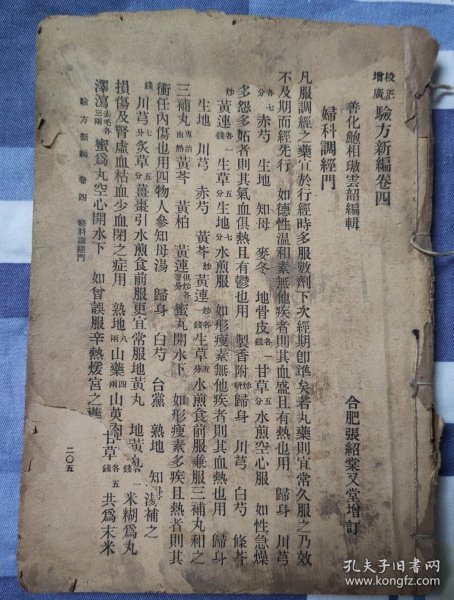 校正增廣驗方新編卷四
善化鮑相璈雲韶編輯
合肥張紹棠又堂增訂
婦科調經門
凡服調經之藥宜於行經時多服數劑下次經期卽準矣若丸藥則宜常久服之乃效
不及期而經先行 如德性溫和素無他疾者則其血盛且有熱也用 歸身 川芎
各七分 赤芍 生地 知母 麥冬 地骨皮各一錢 甘草五分 水煎空心服 如性急燥
多怨多妒者則其氣血俱熱且有鬱也用 製香附 歸身 川芎 白芍 條芩
炒黃連各一錢 生草五分 生地七分 水煎服 如形瘦素無他疾者則其血熱也用 歸身
生地 川芎 赤芍 黃芩 黃連炒各一錢 生草五分 水煎食前服兼服三補丸和之
三補丸專治血熱 黃芩 黃柏 黃連俱炒各等分 蜜丸開水下 如形瘦素多疾且熱者則其
衝任內傷也用四物人參知母湯 歸身 白芍 台黨 熟地 知母 湯補之
錢 川芎七分 炙草五分 薑棗引水煎食前服更宜常服地黃丸 地黃 各一錢 米糊爲丸
損傷及腎虛血枯血少血閉之症用 熟地八兩 山藥四兩 山萸 甘草各五錢 共爲末米
澤瀉去毛各三兩 蜜爲丸空心開水下 如曾誤服辛熱煖宮之藥
驗方新編 卷四 婦科調經門
二〇五
孔夫子旧書网
www.kongfz.com